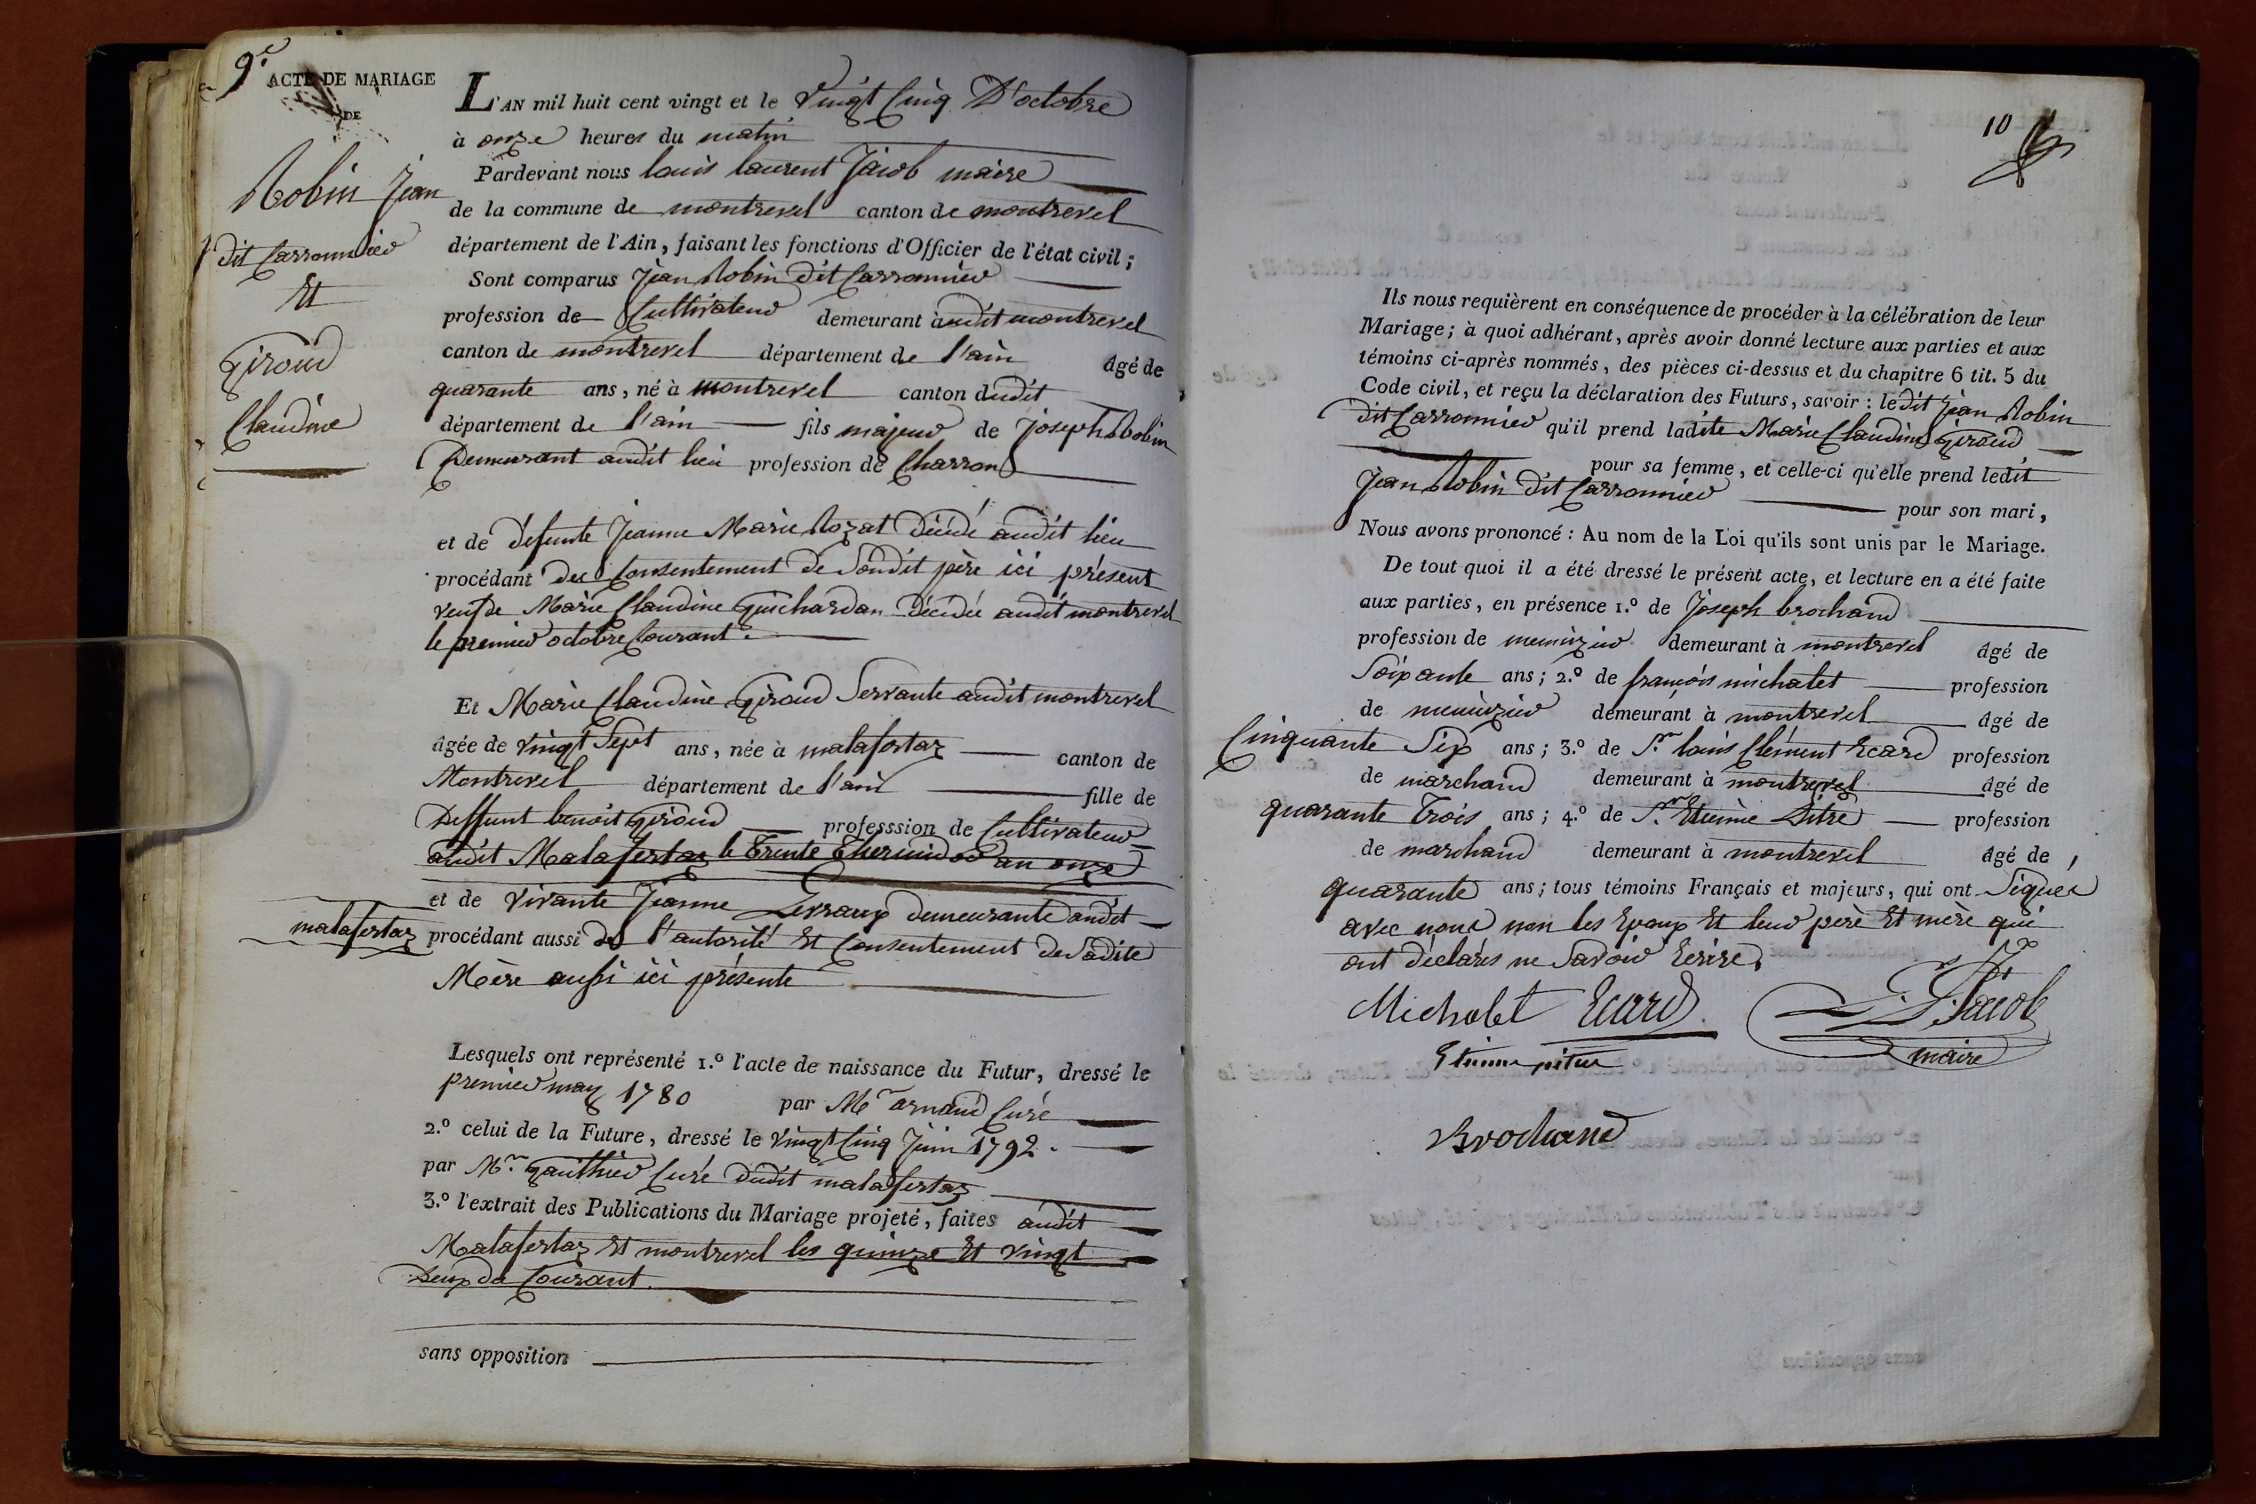 9.e
ACTE DE MARIAGE
DE
Robin Jean
dit Carronnier
Et
Giroud
Claudine
L'AN mil huit cent vingt et le Vingt Cinq D'octobre
à onze heures du matin
Pardevant nous louis laurent Jacob maire
de la commune de montrevel canton de montrevel
département de l'Ain, faisant les fonctions d'Officier de l'état civil;
Sont comparus Jean Robin dit Carronnier
profession de Cultivateur demeurant audit montrevel
canton de montrevel département de l'ain âgé de
quarante ans, né à montrevel canton dudit
département de l'ain fils majeur de Joseph Robin
Demeurant audit lieu profession de Charron
et de défunte Jeanne Marie Rozat décédé audit lieu
procédant du Consentement de Sondit père ici présent
veuf de Marie Claudine Guichardan décédée audit montrevel
le premier octobre Courant.
Et Marie Claudine Giroud Servante audit montrevel
âgée de vingt Sept ans, née à malafertaz canton de
Montrevel département de l'ain fille de
Deffunt benoit Giroud professsion de Cultivateur
audit Malafertaz le Trente Thermidor an onze
et de vivante Jeanne Perraux demeurante audit
malafertaz
procédant aussi de l'autorité Et Consentement de Sadite
Mère aussi ici présente
Lesquels ont représenté 1.º l'acte de naissance du Futur, dressé le
premier may 1780 par Mr arnaud Curé
2.º celui de la Future, dressé le vingt Cinq Juin 1792.
par Mr. Gauthier Curé dudit malafertaz
3.º l'extrait des Publications du Mariage projeté, faites audit
Malafertaz Et montrevel les quinze Et vingt
Deux du Courant.
sans opposition
10
Ils nous requièrent en conséquence de procéder à la célébration de leur
Mariage; à quoi adhérant, après avoir donné lecture aux parties et aux
témoins ci-après nommés, des pièces ci-dessus et du chapitre 6 tit. 5 du
Code civil, et reçu la déclaration des Futurs, savoir: ledit Jean Robin
dit Carronnier qu'il prend ladite Marie Claudine Giroud
pour sa femme, et celle-ci qu'elle prend ledit
Jean Robin dit Carronnier pour son mari,
Nous avons prononcé: Au nom de la Loi qu'ils sont unis par le Mariage.
De tout quoi il a été dressé le présent acte, et lecture en a été faite
aux parties, en présence 1.º de Joseph brochand
profession de menuizier demeurant à montrevel âgé de
Soixante ans; 2.º de françois michalet profession
de menuizier demeurant à montrevel âgé de
Cinquante Six ans; 3.º de Sr. louis Clément Ecard profession
de marchand demeurant à montrevel âgé de
quarante Trois ans; 4.º de Sr. Etienne Pitre profession
de marchand demeurant à montrevel âgé de
quarante ans; tous témoins Français et majeurs, qui ont Signés
avec nous non les Epoux Et leur père Et mère qui
ont déclarés ne Savoir Ecrire.
Michalet Ecard L. L. Jacob
Etienne pitre maire
Brochand